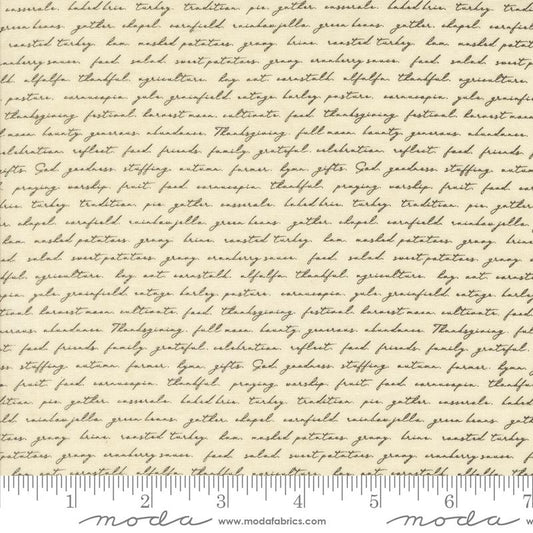 casserole. baked brie. turkey. tradition. pie. gather. casserole. baked brie. turkey. tradition
green beans. gather. chapel. cornfield. rainbow jello. green beans. gather. chapel. cornf
roasted turkey. ham. mashed potatoes. gravy. brine. roasted turkey. ham. mashed potat
cranberry sauce. food. salad. sweet potatoes. gravy. cranberry sauce. food. salad. sweet p
alfalfa. thankful. agriculture. hay. oat. cornstalk. alfalfa. thankful. agriculture.
pasture. cornucopia. yule. grainfield. cottage. barley. pasture. cornucopia. yule. grainfi
thanksgiving. festival. harvest moon. cultivate. food. thanksgiving. festival. harvest moon
moon. bounty. generous. abundance. Thanksgiving. full moon. bounty. generous. abundance.
celebration. reflect. food. friends. family. grateful. celebration. reflect. food. friends.
gifts. God. goodness. stuffing. autumn. farmer. gifts. God. goodness. stuffing. autum
praying. worship. fruit. food. cornucopia. thankful. praying. worship. fruit. food. cor
brie. turkey. tradition. pie. gather. casserole. baked brie. turkey. tradition. pie. gather
chapel. cornfield. rainbow jello. green beans. gather. chapel. cornfield. rainbow jello.
ham. mashed potatoes. gravy. brine. roasted turkey. ham. mashed potatoes. gravy. brine
salad. sweet potatoes. gravy. cranberry sauce. food. salad. sweet potatoes. gravy.
agriculture. hay. oat. cornstalk. alfalfa. thankful. agriculture. hay. oat. cornst
yule. grainfield. cottage. barley. pasture. cornucopia. yule. grainfield. cottage. barley
harvest moon. cultivate. food. thanksgiving. festival. harvest moon. cultivate. food.
abundance. Thanksgiving. full moon. bounty. generous. abundance. Thanksgiving. ful
food. friends. family. grateful. celebration. reflect. food. friends. family. grateful.
stuffing. autumn. farmer. gifts. God. goodness. stuffing. autumn. farmer.
fruit. food. cornucopia. thankful. praying. worship. fruit. food. cornucopia. thankfu
pie. gather. casserole. baked brie. turkey. tradition. pie. gather. casserole. baked
rainbow jello. green beans. gather. chapel. cornfield. rainbow jello. green beans. gather
gravy. brine. roasted turkey. ham. mashed potatoes. gravy. brine. roasted turkey.
potatoes. gravy. cranberry sauce. food. salad. sweet potatoes. gravy. cranberry sauce. food
hay. oat. cornstalk. alfalfa. thankful. agriculture. hay. oat. cornstalk. alfalfa.
1 2 3 4 5 6 7
moda www.modafabrics.com moda